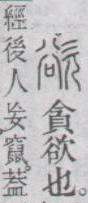 欲貪欲也。
經後人妄竄葢